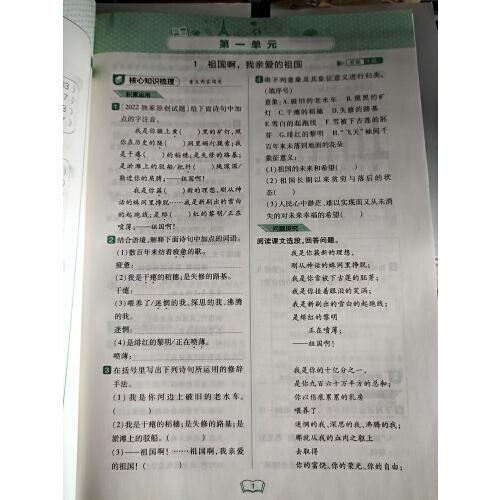 第一单元
1 祖国啊，我亲爱的祖国
核心知识梳理
积累运用
1 [2022 独家原创试题]给下面诗句中加
点的字注音。
我是你额上熏( )黑的矿灯,照
你在历史的隧( )洞里蜗行摸索;我
是干瘪( )的稻穗;是失修的路基;
是淤滩上的驳船/把纤( )绳深深/
勒进你的肩膊;——祖国啊!
我是你簇( )新的理想,刚从神
话的蛛网里挣脱……我是新刷出的雪白
的起跑线;是绯( )红的黎明/正在
喷薄;——祖国啊!
2 结合语境,解释下面诗句中加点的词语。
(1)数百年来纺着疲惫的歌。
疲惫:
(2)我是干瘪的稻穗;是失修的路基。
干瘪:
(3)喂养了/迷惘的我、深思的我、沸腾
的我。
迷惘:
(4)是绯红的黎明/正在喷薄。
喷薄:
3 在括号里写出下列诗句所运用的修辞
手法。
(1)我是你河边上破旧的老水车。
( )
(2)我是干瘪的稻穗;是失修的路基;是
淤滩上的驳船。( )
(3)——祖国啊!……祖国啊,我亲爱
的祖国!( )
4 将下列意象及其象征意义进行归类。
(填序号)
意象:A.破旧的老水车 B.熏黑的矿
灯 C.干瘪的稻穗 D.失修的路基
E.雪白的起跑线 F.雪被下古莲的胚
芽 G.绯红的黎明 H.“飞天”袖间千
百年来未落到地面的花朵
象征意义:
(1)祖国的未来和希望( )
(2)祖国长期以来贫穷与落后的状
态( )
(3)人民心中静茫、难以实现而又从未消
失的对未来幸福的希望( )
问题探究
阅读课文选段,回答问题。
我是你簇新的理想,
刚从神话的蛛网里挣脱;
我是你雪被下古莲的胚芽;
我是你挂着眼泪的笑涡;
我是新刷出的雪白的起跑线;
是绯红的黎明
正在喷薄;
——祖国啊!
我是你的十亿分之一,
是你九百六十万平方的总和;
你以伤痕累累的乳房
喂养了
迷惘的我、深思的我、沸腾的我;
那就从我的血肉之躯上
去取得
你的富饶、你的荣光、你的自由;
1